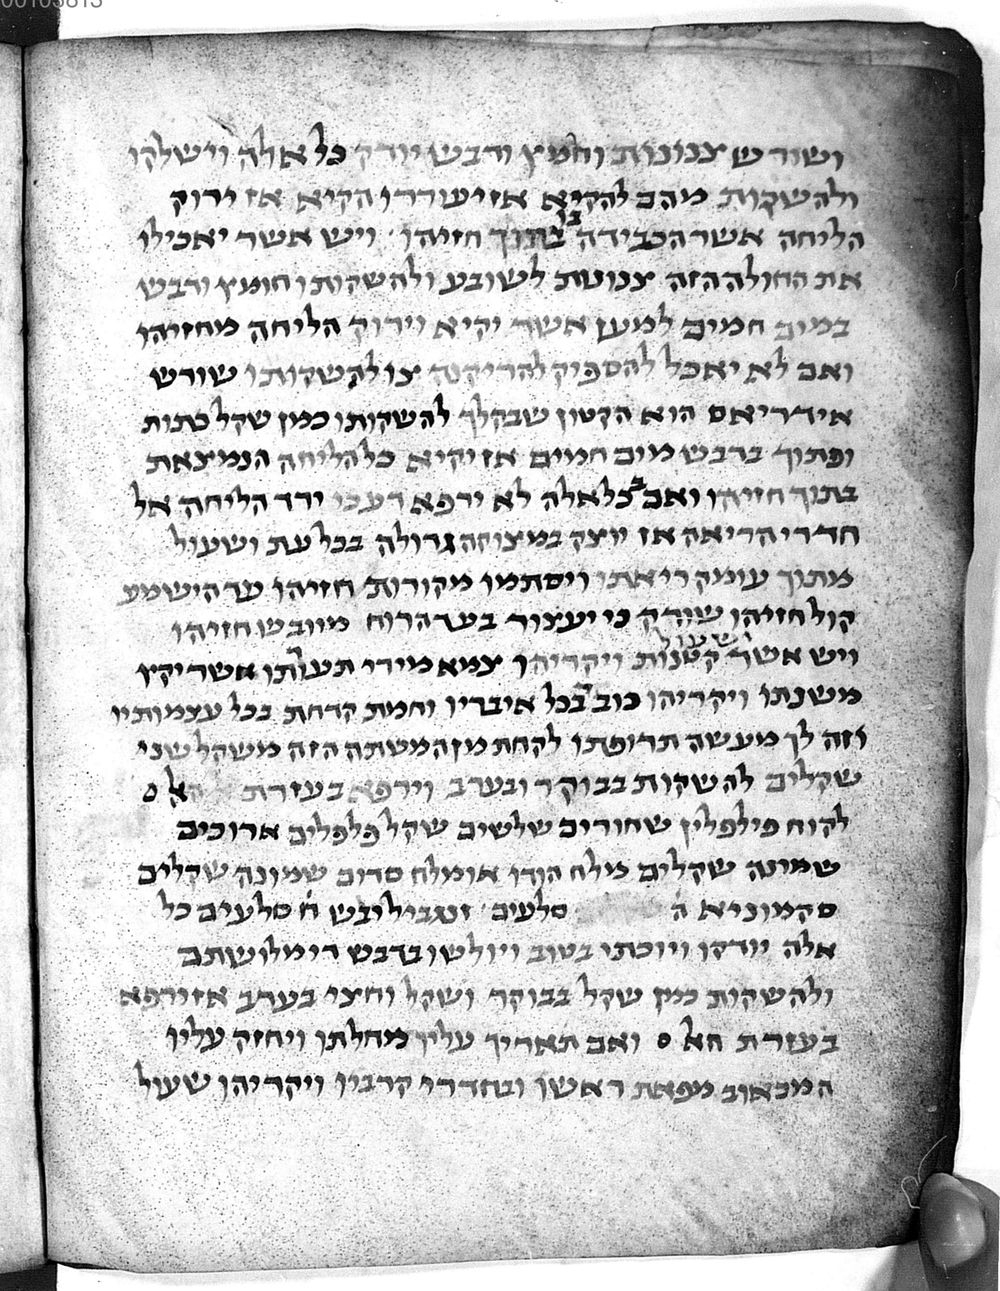 00105813
ושורש צנונות וחמץ ודבש יודק כל אלה וישלקו
ולהשקות מהם להקיא אז יעודדו הקיא אז ירוק
הליחה אשר הכבידה בו בתוך חזיהו ויש אשר יאכילו
את החולה הזה צנונות לשובע ולהשקותו חומץ ודבש
במים חמים למען אשר יקיא וירוק הליחה מחזיהו
ואם לא יאכל להספיק להריקה צו להשקותו שורש
אידריאס הוא הקטון שבקלך להשקותו כמן שקל כתות
ופתוך בדבש מים חמים אז יקיא כל הליחה הנמצאת
בתוך חזיהו ואם בכל אלה לא ירפא דע כי ירד הליחה אל
חדרי הריאה אז יוצק במצוקה גדולה בכל עת ושעול
מתוך עומק ריאתו ויסתמו מקורות חזיהו עד הישמע
קול חזיהו שורק כי יעצור בעד הרוח מיובש חזיהו
ויש אשר שעול קטנות ויקריהו צמא מידי תעורתו אשר יקיץ
משנתו ויקריהו כוב בכל איבריו וחמת קדחת בכל עצמותיו
וזה לך מעשה תרופתו לקחת מן המשתה הזה משקל שני
שקלים להשקות בבוקר ובערב וירפא בעזרת האל
לקוח פילפלין שחורים שלשים שקל פלפלים ארוכים
שמונה שקלים מלח הודו או מלח סדום שמונה שקלים
סקמוניא ה סלעים זנגביל יבש ח סלעים כל
אלה יודקו ויוכתו בטוב ויולשו בדבש די מלושתם
ולהשקות כמן שקל בבוקר ושקל וחצי בערב אז ירפא
בעזרת האל ואם תאריך עליו מחלתו ויחזק עליו
המכאוב מפאת ראשו ובחדרי קרביו ויקריהו שעול